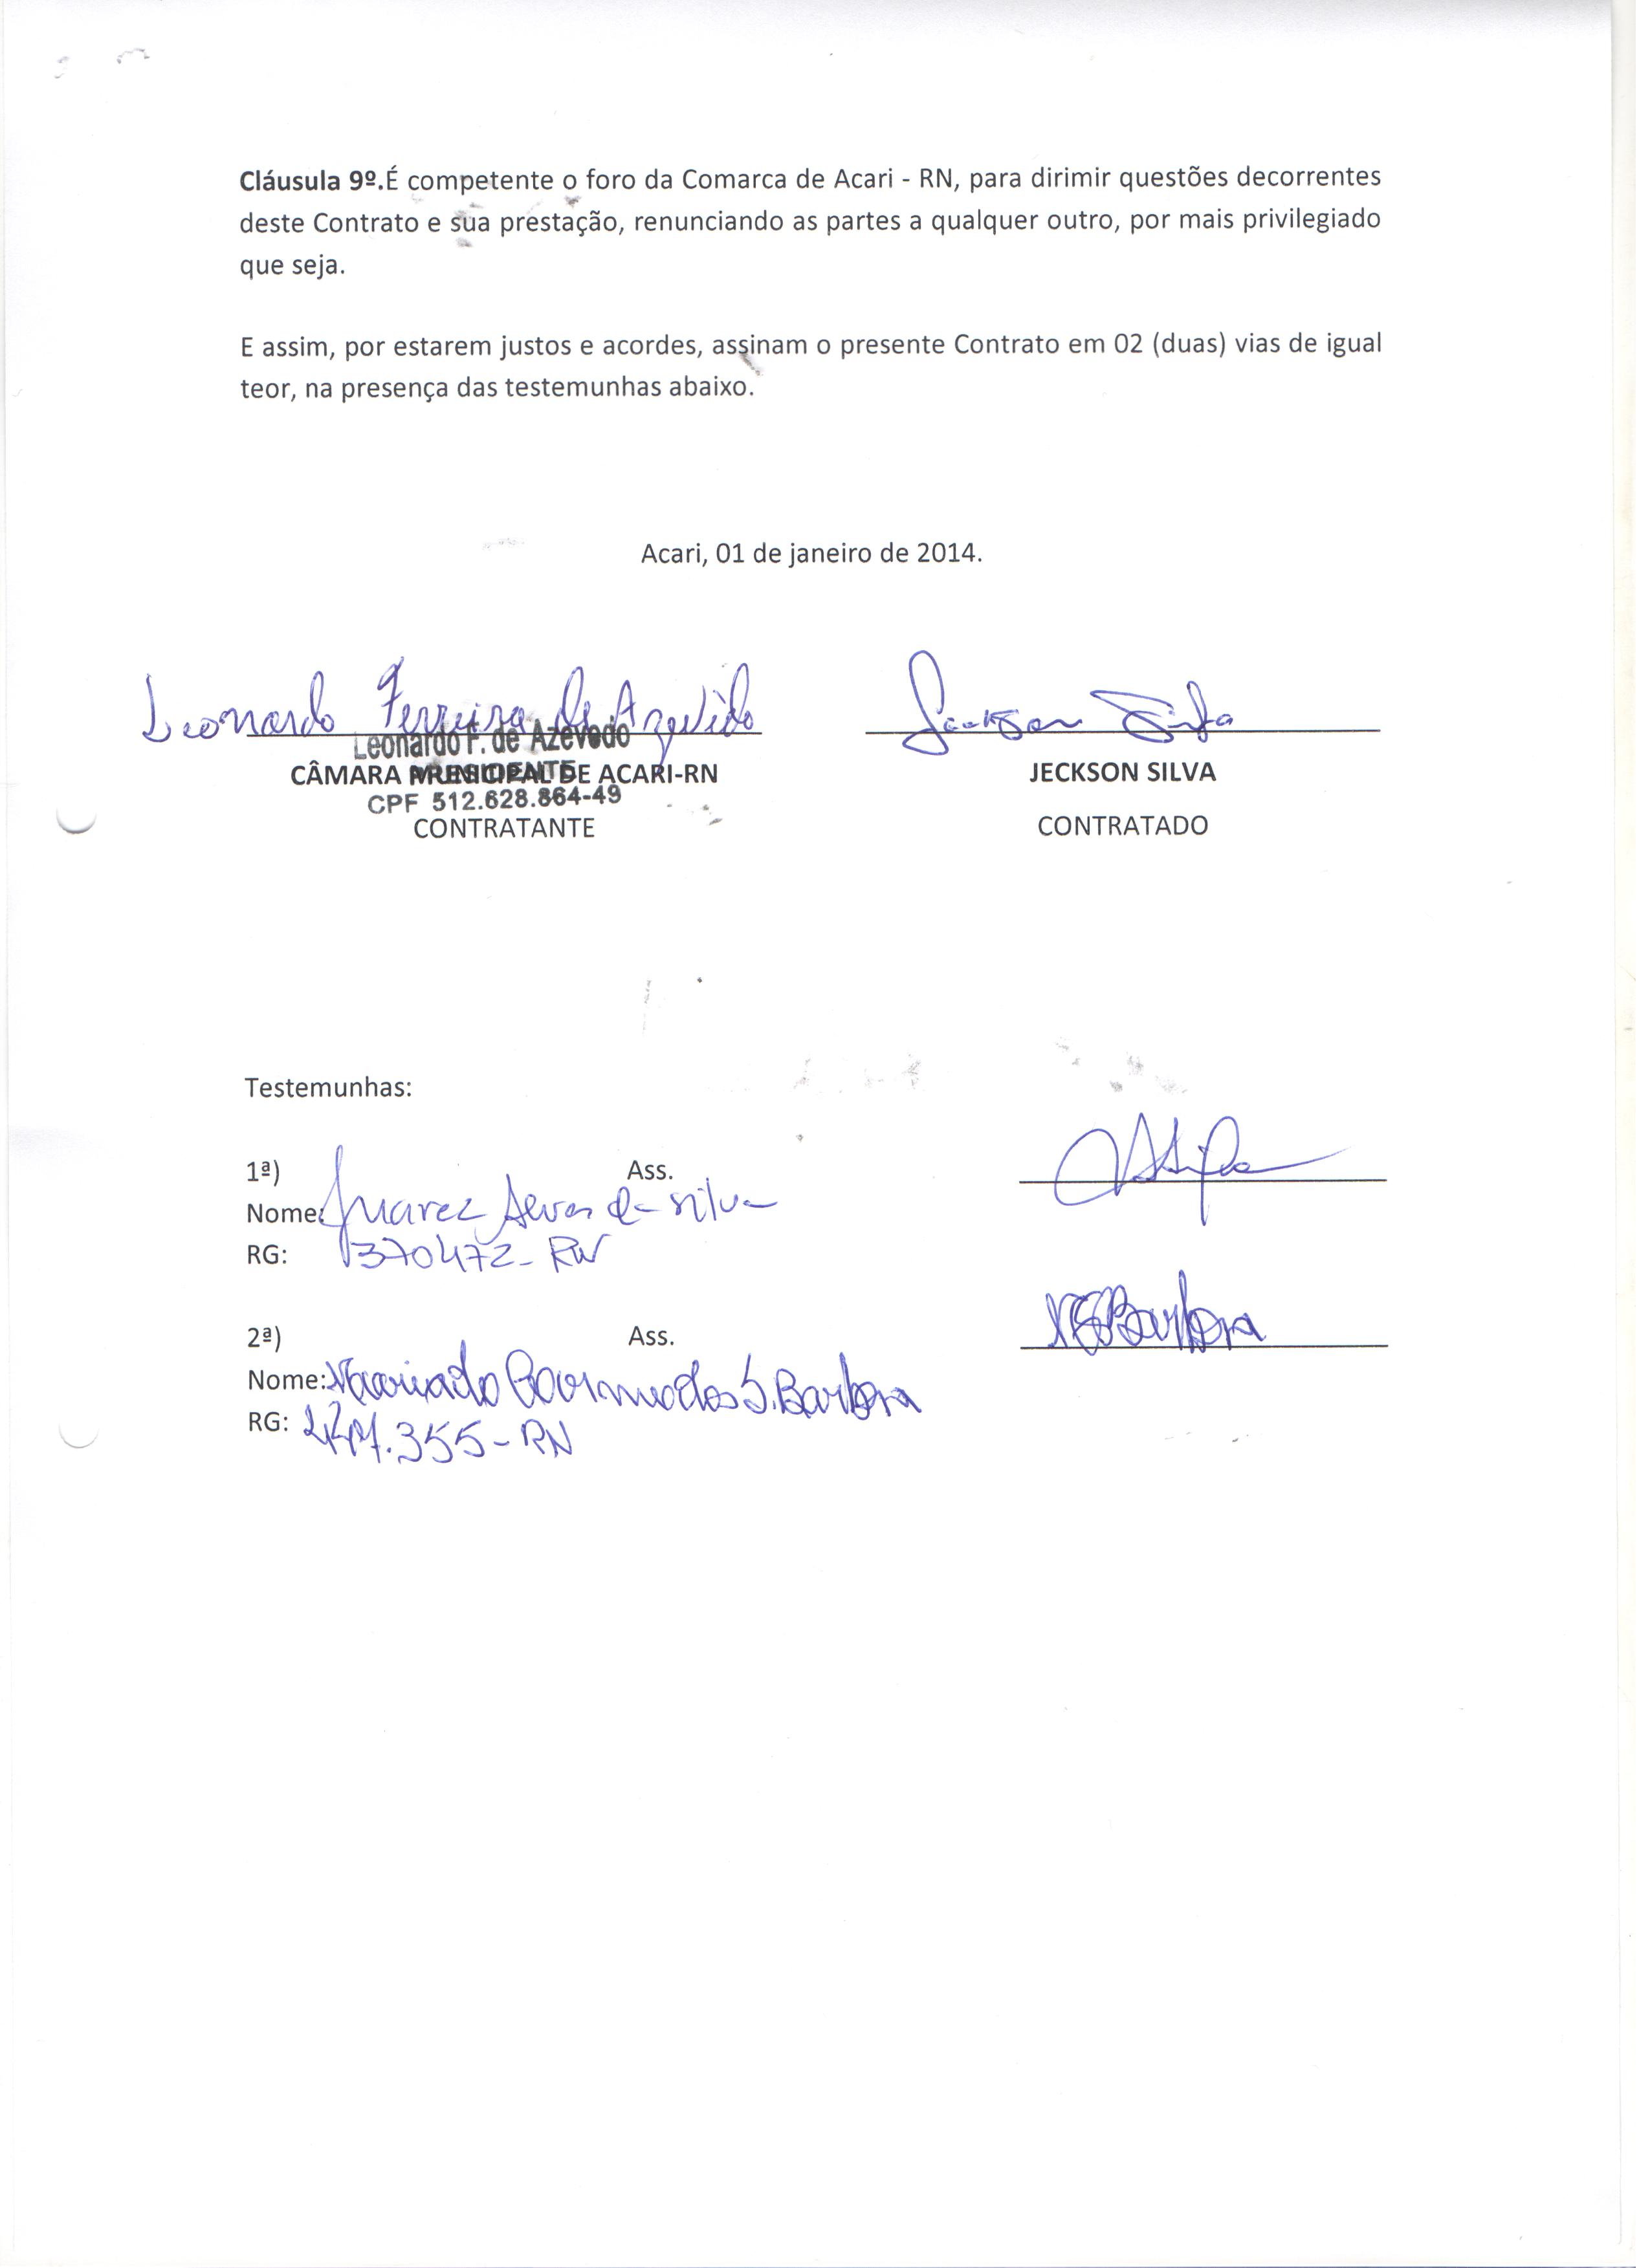 Cláusula 9º.É competente o foro da Comarca de Acari - RN, para dirimir questões decorrentes
deste Contrato e sua prestação, renunciando as partes a qualquer outro, por mais privilegiado
que seja.
E assim, por estarem justos e acordes, assinam o presente Contrato em 02 (duas) vias de igual
teor, na presença das testemunhas abaixo.
Acari, 01 de janeiro de 2014.
Leonardo Ferreira de Azevêdo
Leonardo F. de Azevedo
PRESIDENTE
CÂMARA MUNICIPAL DE ACARI-RN
CPF 512.628.864-49
CONTRATANTE
Jeckson Silva
JECKSON SILVA
CONTRATADO
Testemunhas:
1ª) Ass.
Nome: Juarez Alves da Silva
RG: 1370472-RN
2ª) Ass. Barbosa
Nome: S. Barbosa
RG: .355-RN